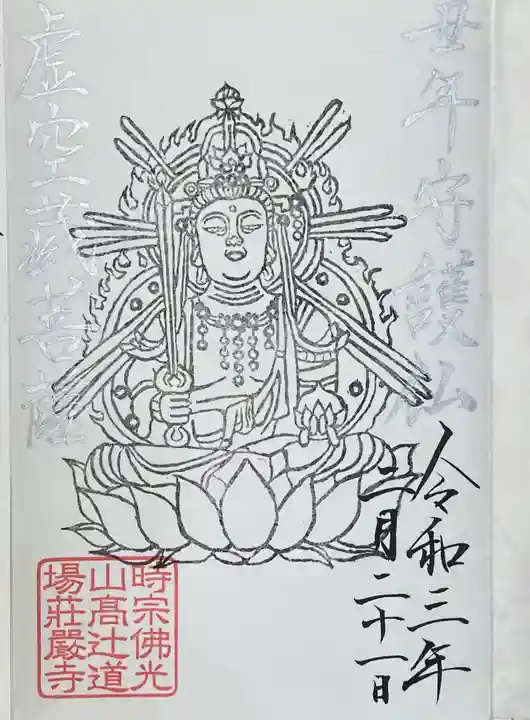 丑年守護仏
令和三年
二月二十一日
虚空蔵菩薩
時宗佛光
山髙辻道
場莊嚴寺